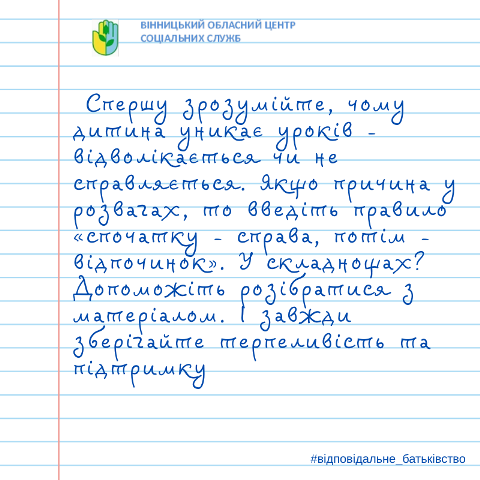 ВІННИЦЬКИЙ ОБЛАСНИЙ ЦЕНТР
СОЦІАЛЬНИХ СЛУЖБ
Спершу зрозумійте, чому
дитина уникає уроків -
відволікається чи не
справляється. Якщо причина у
розвагах, то введіть правило
«спочатку - справа, потім -
відпочинок». У складнощах?
Допоможіть розібратися з
матеріалом. І завжди
зберігайте терпеливість та
підтримку
#відповідальне_батьківство